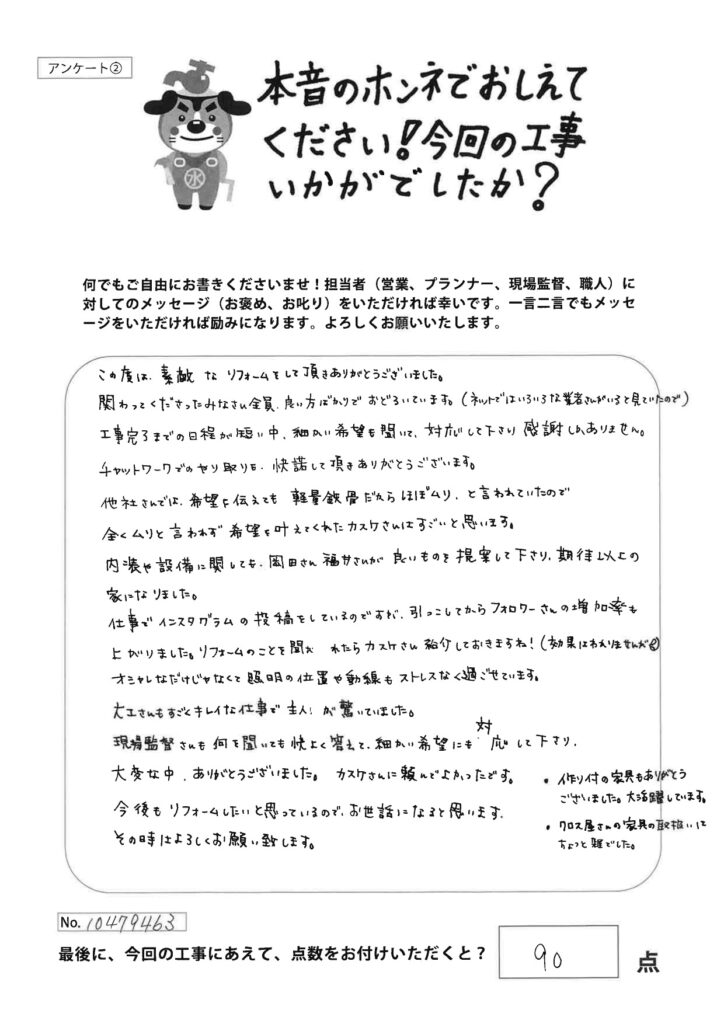 アンケート②
本音のホンネでおしえて
ください!今回の工事
いかがでしたか?
水
何でもご自由にお書きくださいませ!担当者(営業、プランナー、現場監督、職人)に
対してのメッセージ(お褒め、お叱り)をいただければ幸いです。一言二言でもメッセ
ージをいただければ励みになります。よろしくお願いいたします。
この度は、素敵な リフォームをして頂きありがとうございました。
関わってくださったみなさん全員、良い方ばかりでおどろいています。(ネットではいろいろな業者さんがいると見ていたので)
工事完了までの日程が短い中、細かい希望も聞いて、対応して下さり感謝しかありません。
チャットワークでのやり取りも、快諾して頂きありがとうございます。
他社さんでは、希望を伝えても 軽量鉄骨だからほぼムリ、と言われていたので
全くムリと言われず希望を叶えてくれたカスケさんはすごいと思います。
内装や設備に関しても、岡田さん福井さんが良いものを提案して下さり、期待以上の
家になりました。
仕事でインスタグラムの投稿をしているのですが、引っこしてからフォロワーさんの増加率も
上がりました。リフォームのことを聞かれたらカスケさん紹介しておきますね!(効果はわかりませんが)
オシャレなだけじゃなくて照明の位置や動線もストレスなく過ごせています。
大工さんもすごくキレイな仕事で主人が驚いていました。
現場監督さんも何を聞いても快よく答えて、細かい希望にも対応して下さり、
大変な中、ありがとうございました。 カスケさんに頼んでよかったです。
今後もリフォームしたいと思っているので、お世話になると思います。
その時はよろしくお願い致します。
・作り付の家具もありがとう
ございました。大活躍しています。
・クロス屋さんの家具の取扱いは
ちょっと雑でした。
No. 10479463
最後に、今回の工事にあえて、点数をお付けいただくと? 90 点